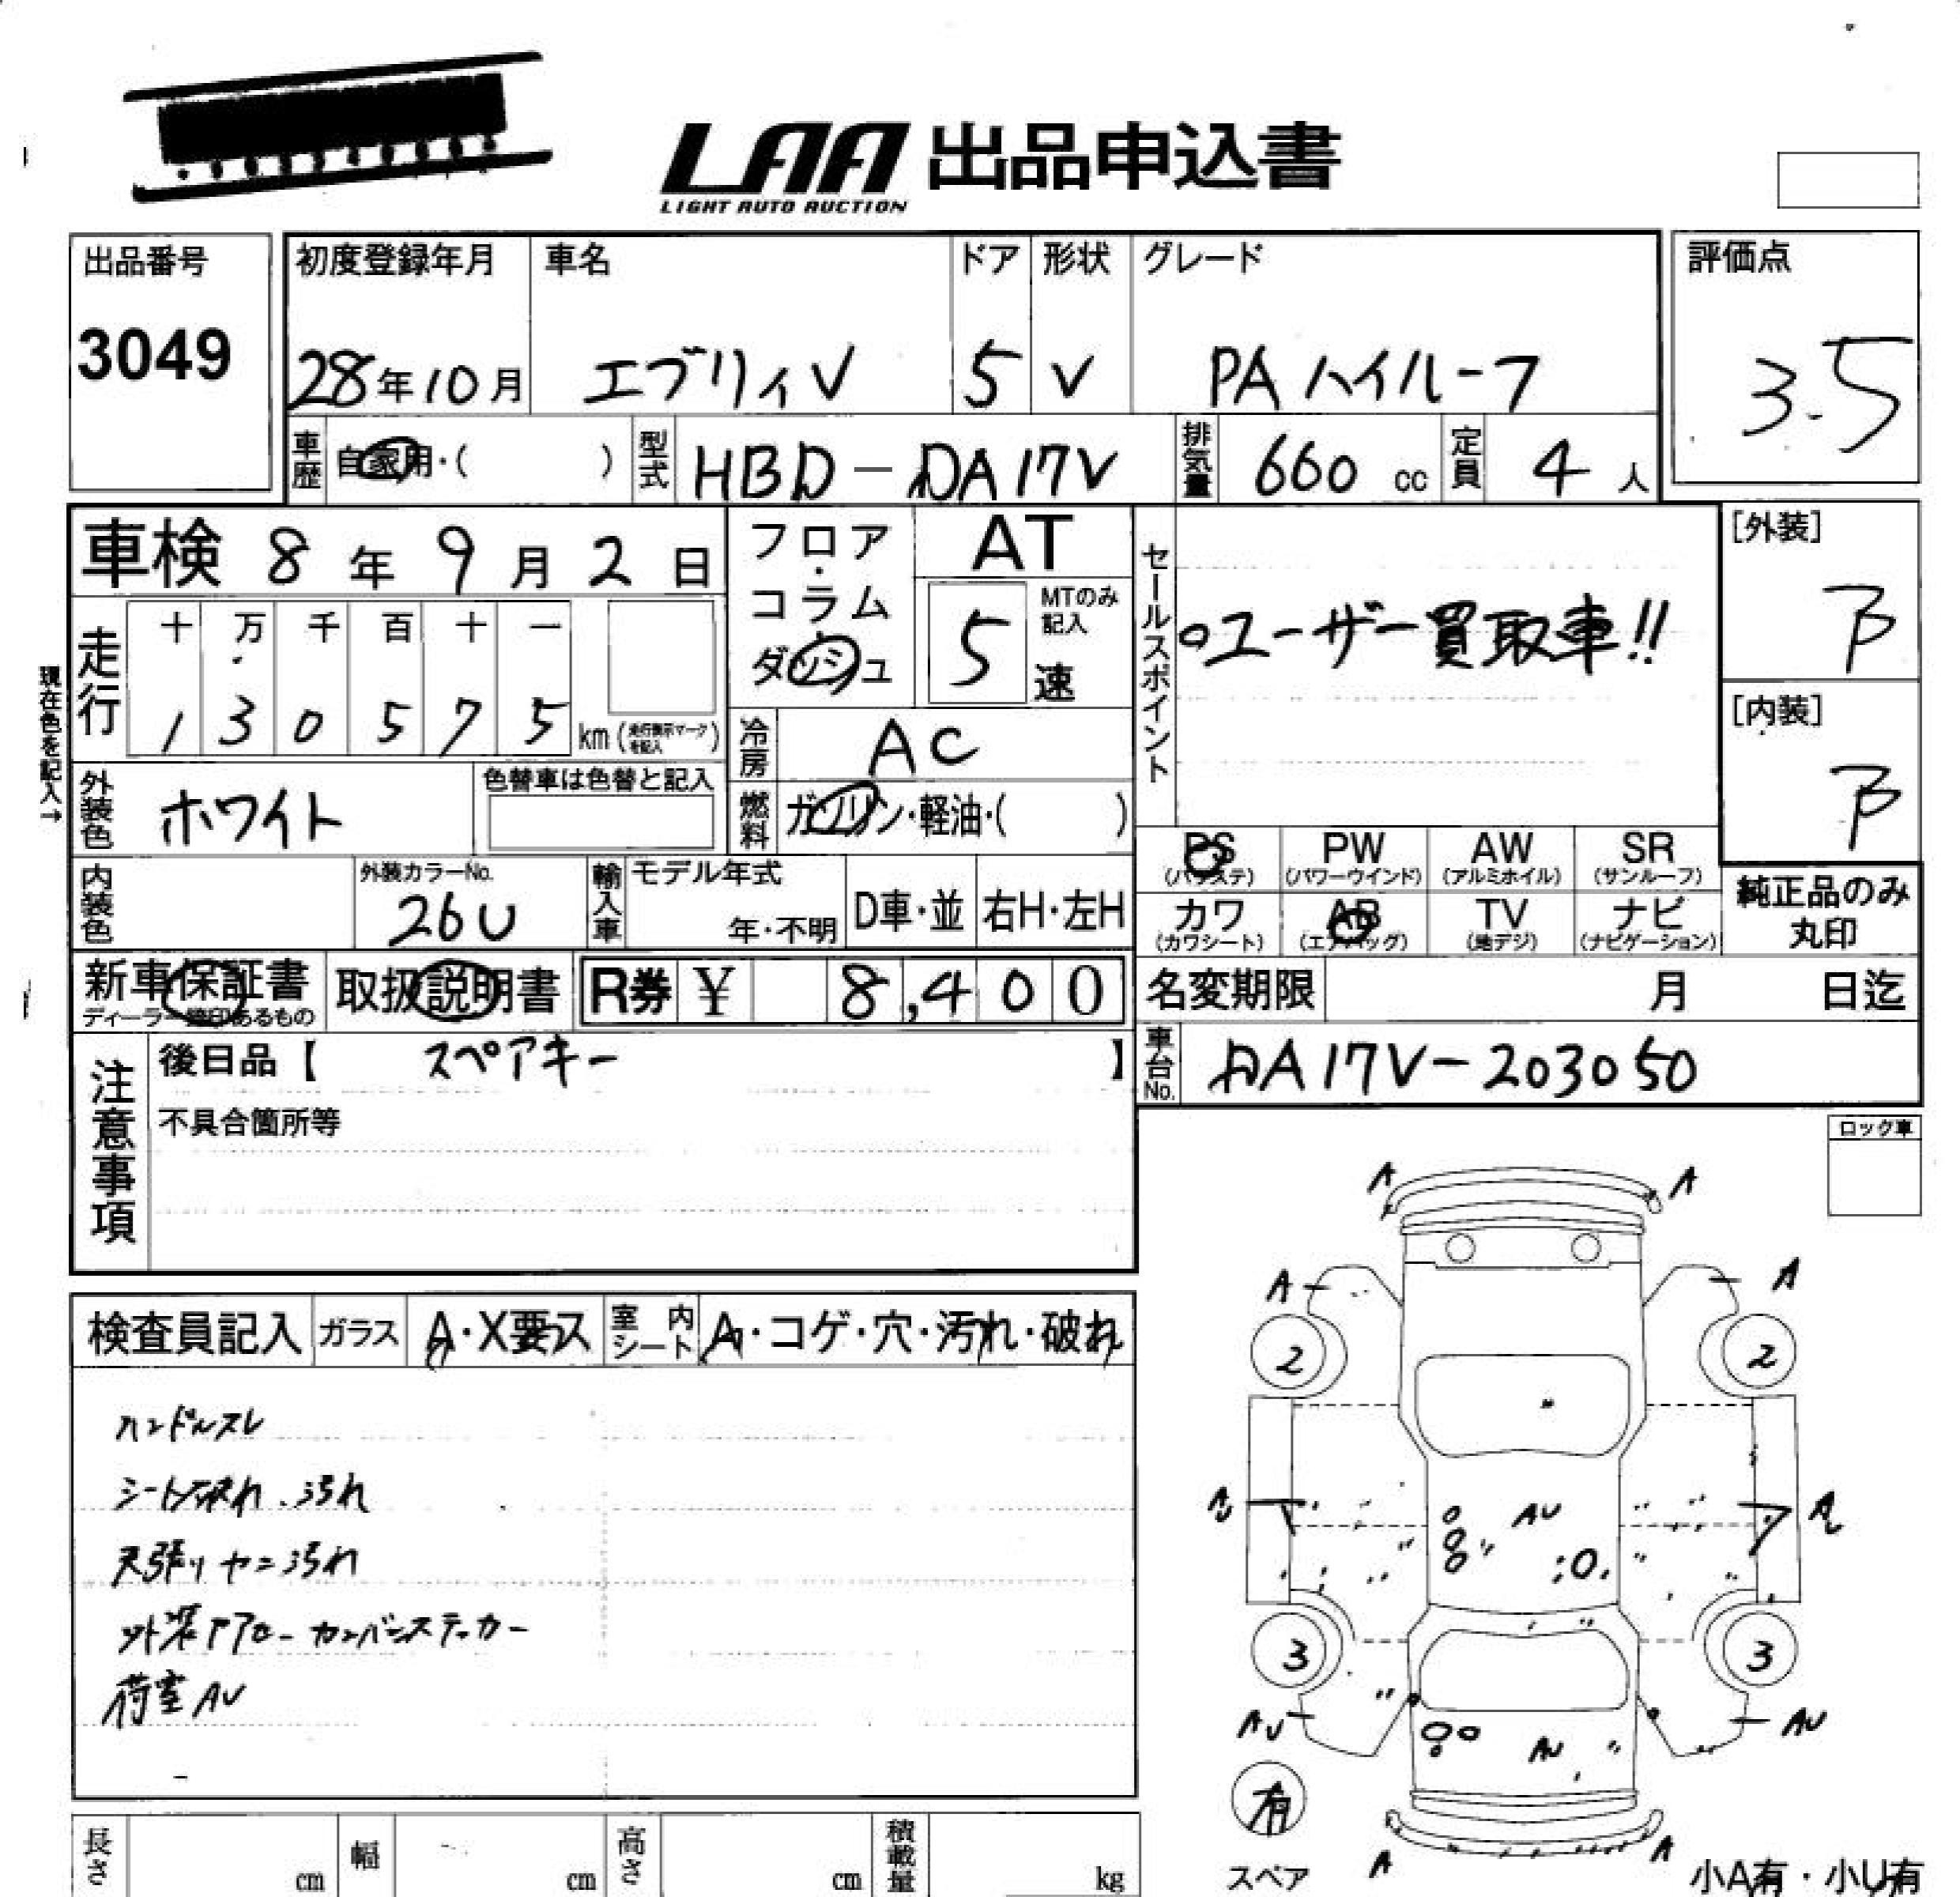 LAA 出品申込書
LIGHT AUTO AUCTION
出品番号
3049
初度登録年月
28年10月
車名
エブリィV
ドア
5
形状
V
グレード
PA ハイルーフ
評価点
3.5
車歴
自家用・( )
型式
HBD-DA17V
排気量
660 cc
定員
4 人
車検 8年 9月 2日
走行
十 万 千 百 十 一
1 3 0 5 7 5 km (走行表示マークを記入)
現在色を記入→
外装色
ホワイト
色替車は色替と記入
内装色
外装カラーNo.
26U
フロア・コラム
ダッシュ
AT
5
MTのみ記入
速
冷房
AC
燃料
ガソリン・軽油・( )
輸入車
モデル年式
年・不明
D車・並
右H・左H
セールスポイント
○ユーザー買取車!!
[外装]
B
[内装]
B
PS (パワステ)
PW (パワーウインド)
AW (アルミホイル)
SR (サンルーフ)
カワ (カワシート)
AB (エアバッグ)
TV (地デジ)
ナビ (ナビゲーション)
純正品のみ
丸印
新車保証書
取扱説明書
R券 ¥ 8,400
名変期限 月 日迄
車台No.
DA17V-203050
注意事項
後日品【 スペアキー 】
不具合箇所等
ロック車
検査員記入
ガラス
A・X要ス
室内シート
A・コゲ・穴・汚れ・破れ
ハンドルスレ
シート破れ、汚れ
天張りヤニ汚れ
外装ドアロー カンバンステッカー
荷室AU
A
A
A
A
2
2
AU
3
3
AU
AU
AU
有
スペア
A
A
小A有・小U有
長さ cm
幅 cm
高さ cm
積載量 kg